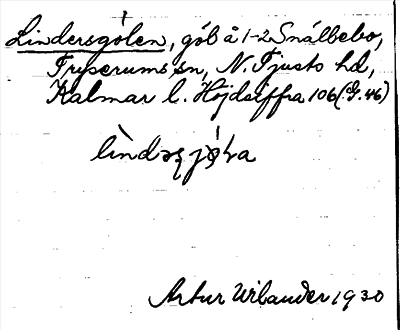 Lindersgölen, göl å 1-2 Snålbebo,
Tryserums sn, N. Tjusts hd,
Kalmar l. Höjdsiffra 106 (G. 46)
Artur Wilander 1930